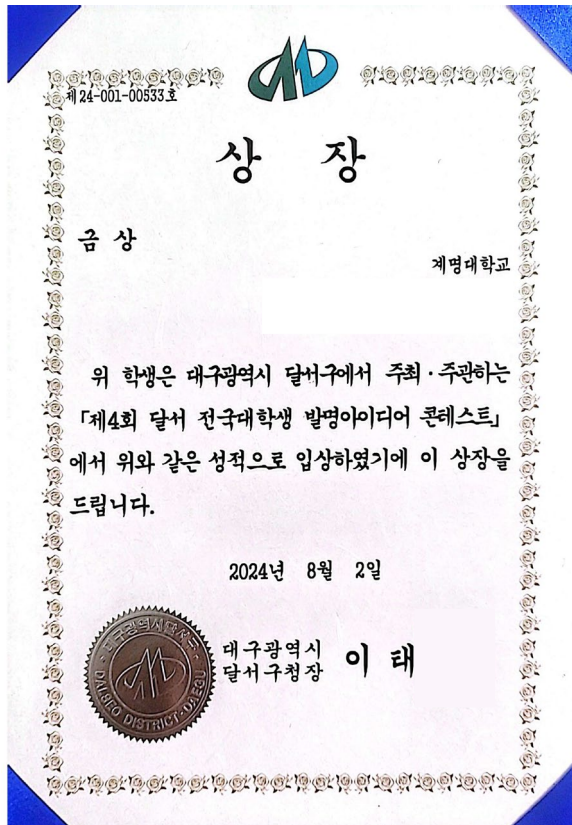 제 24-001-00533 호
상 장
금 상
계명대학교
위 학생은 대구광역시 달서구에서 주최·주관하는
「제4회 달서 전국대학생 발명아이디어 콘테스트」
에서 위와 같은 성적으로 입상하였기에 이 상장을
드립니다.
2024년 8월 2일
대구광역시
달서구청장 이 태
대구광역시달서구
DALSEO DISTRICT·DAEGU